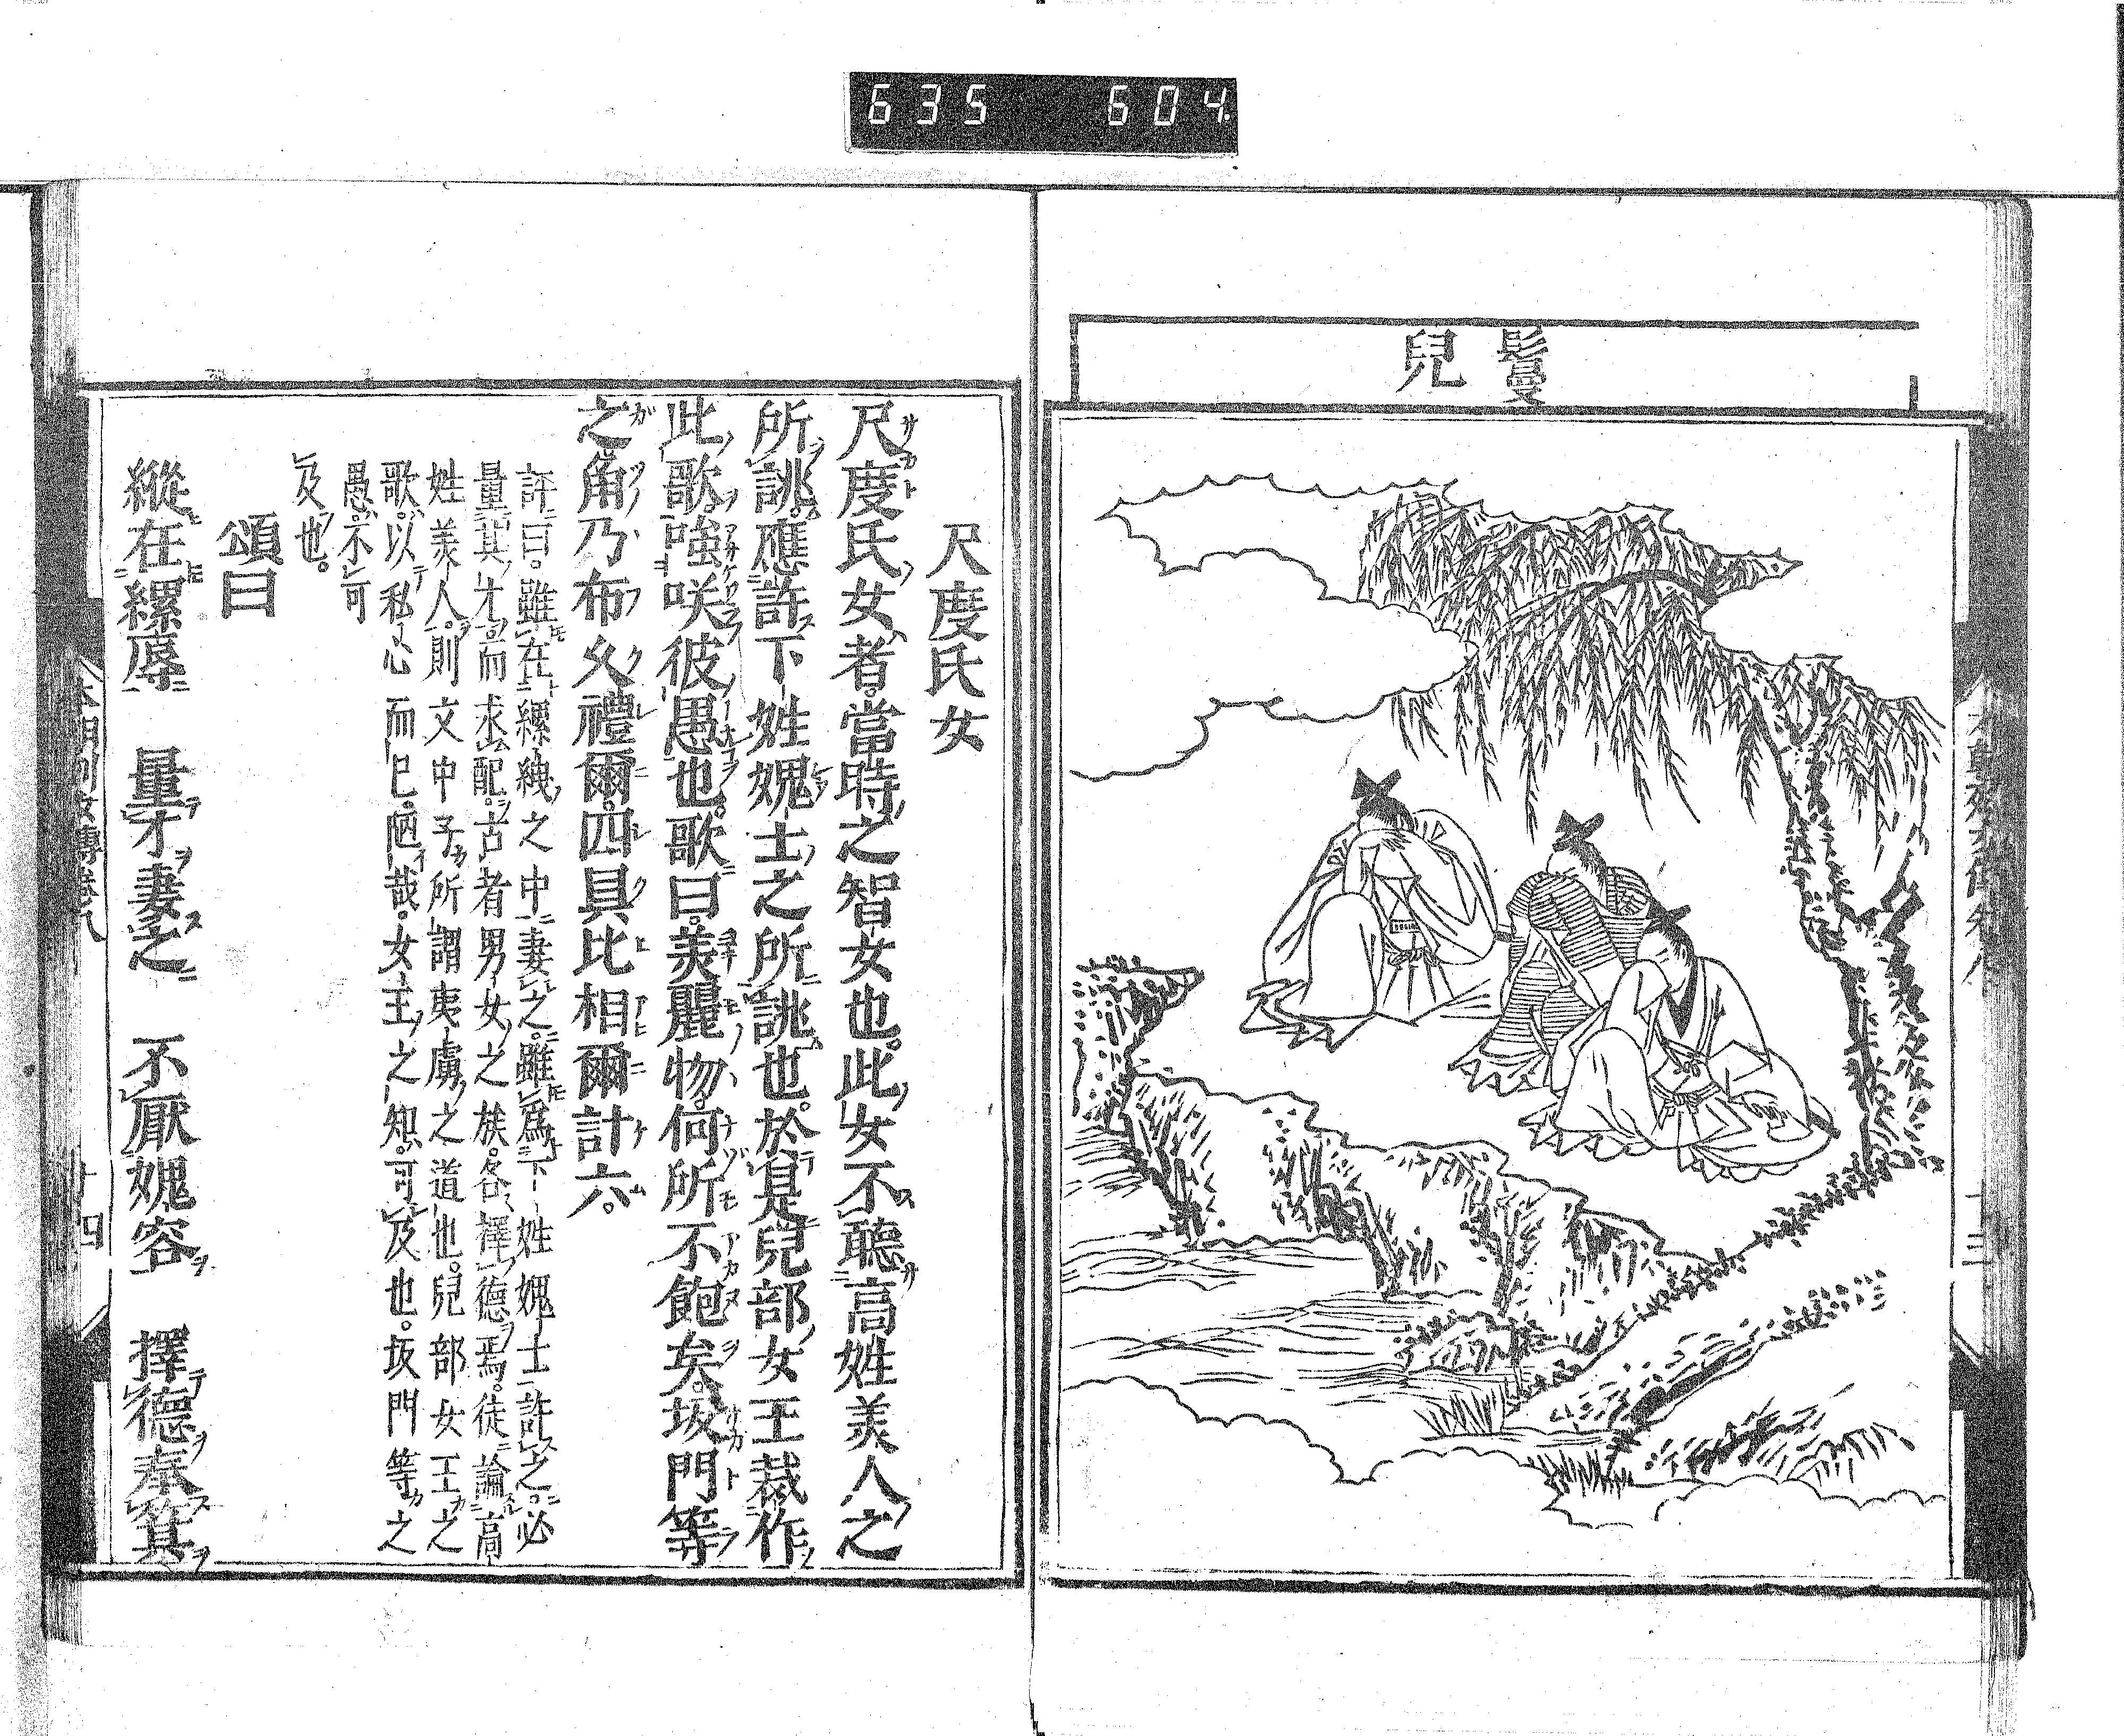 635 604
鬘
兒
尺度氏女
尺度氏女者。當時之智女也。此女不聽高姓美人之
所誂。應許下姓媿士之所誂也。於是兒部女王裁作
此歌。嗤咲彼愚也。歌曰。美麗物。何所不飽矣。坂門等
之角乃布久禮爾。四具比相爾計六。
評曰。雖在縲絏之中妻之。雖為下姓媿士許之。必
量其才。而求配。古者男女之族。各擇德焉。徒論高
姓美人。則文中子所謂夷虜之道也。兒部女王之
歌。以私心而已。陋哉。女王之知。可及也。坂門等之
愚。不可
及也。
頌曰
縱在縲辱 量才妻之 不厭媿容 擇德奉箕
本朝列女傳卷八
十四